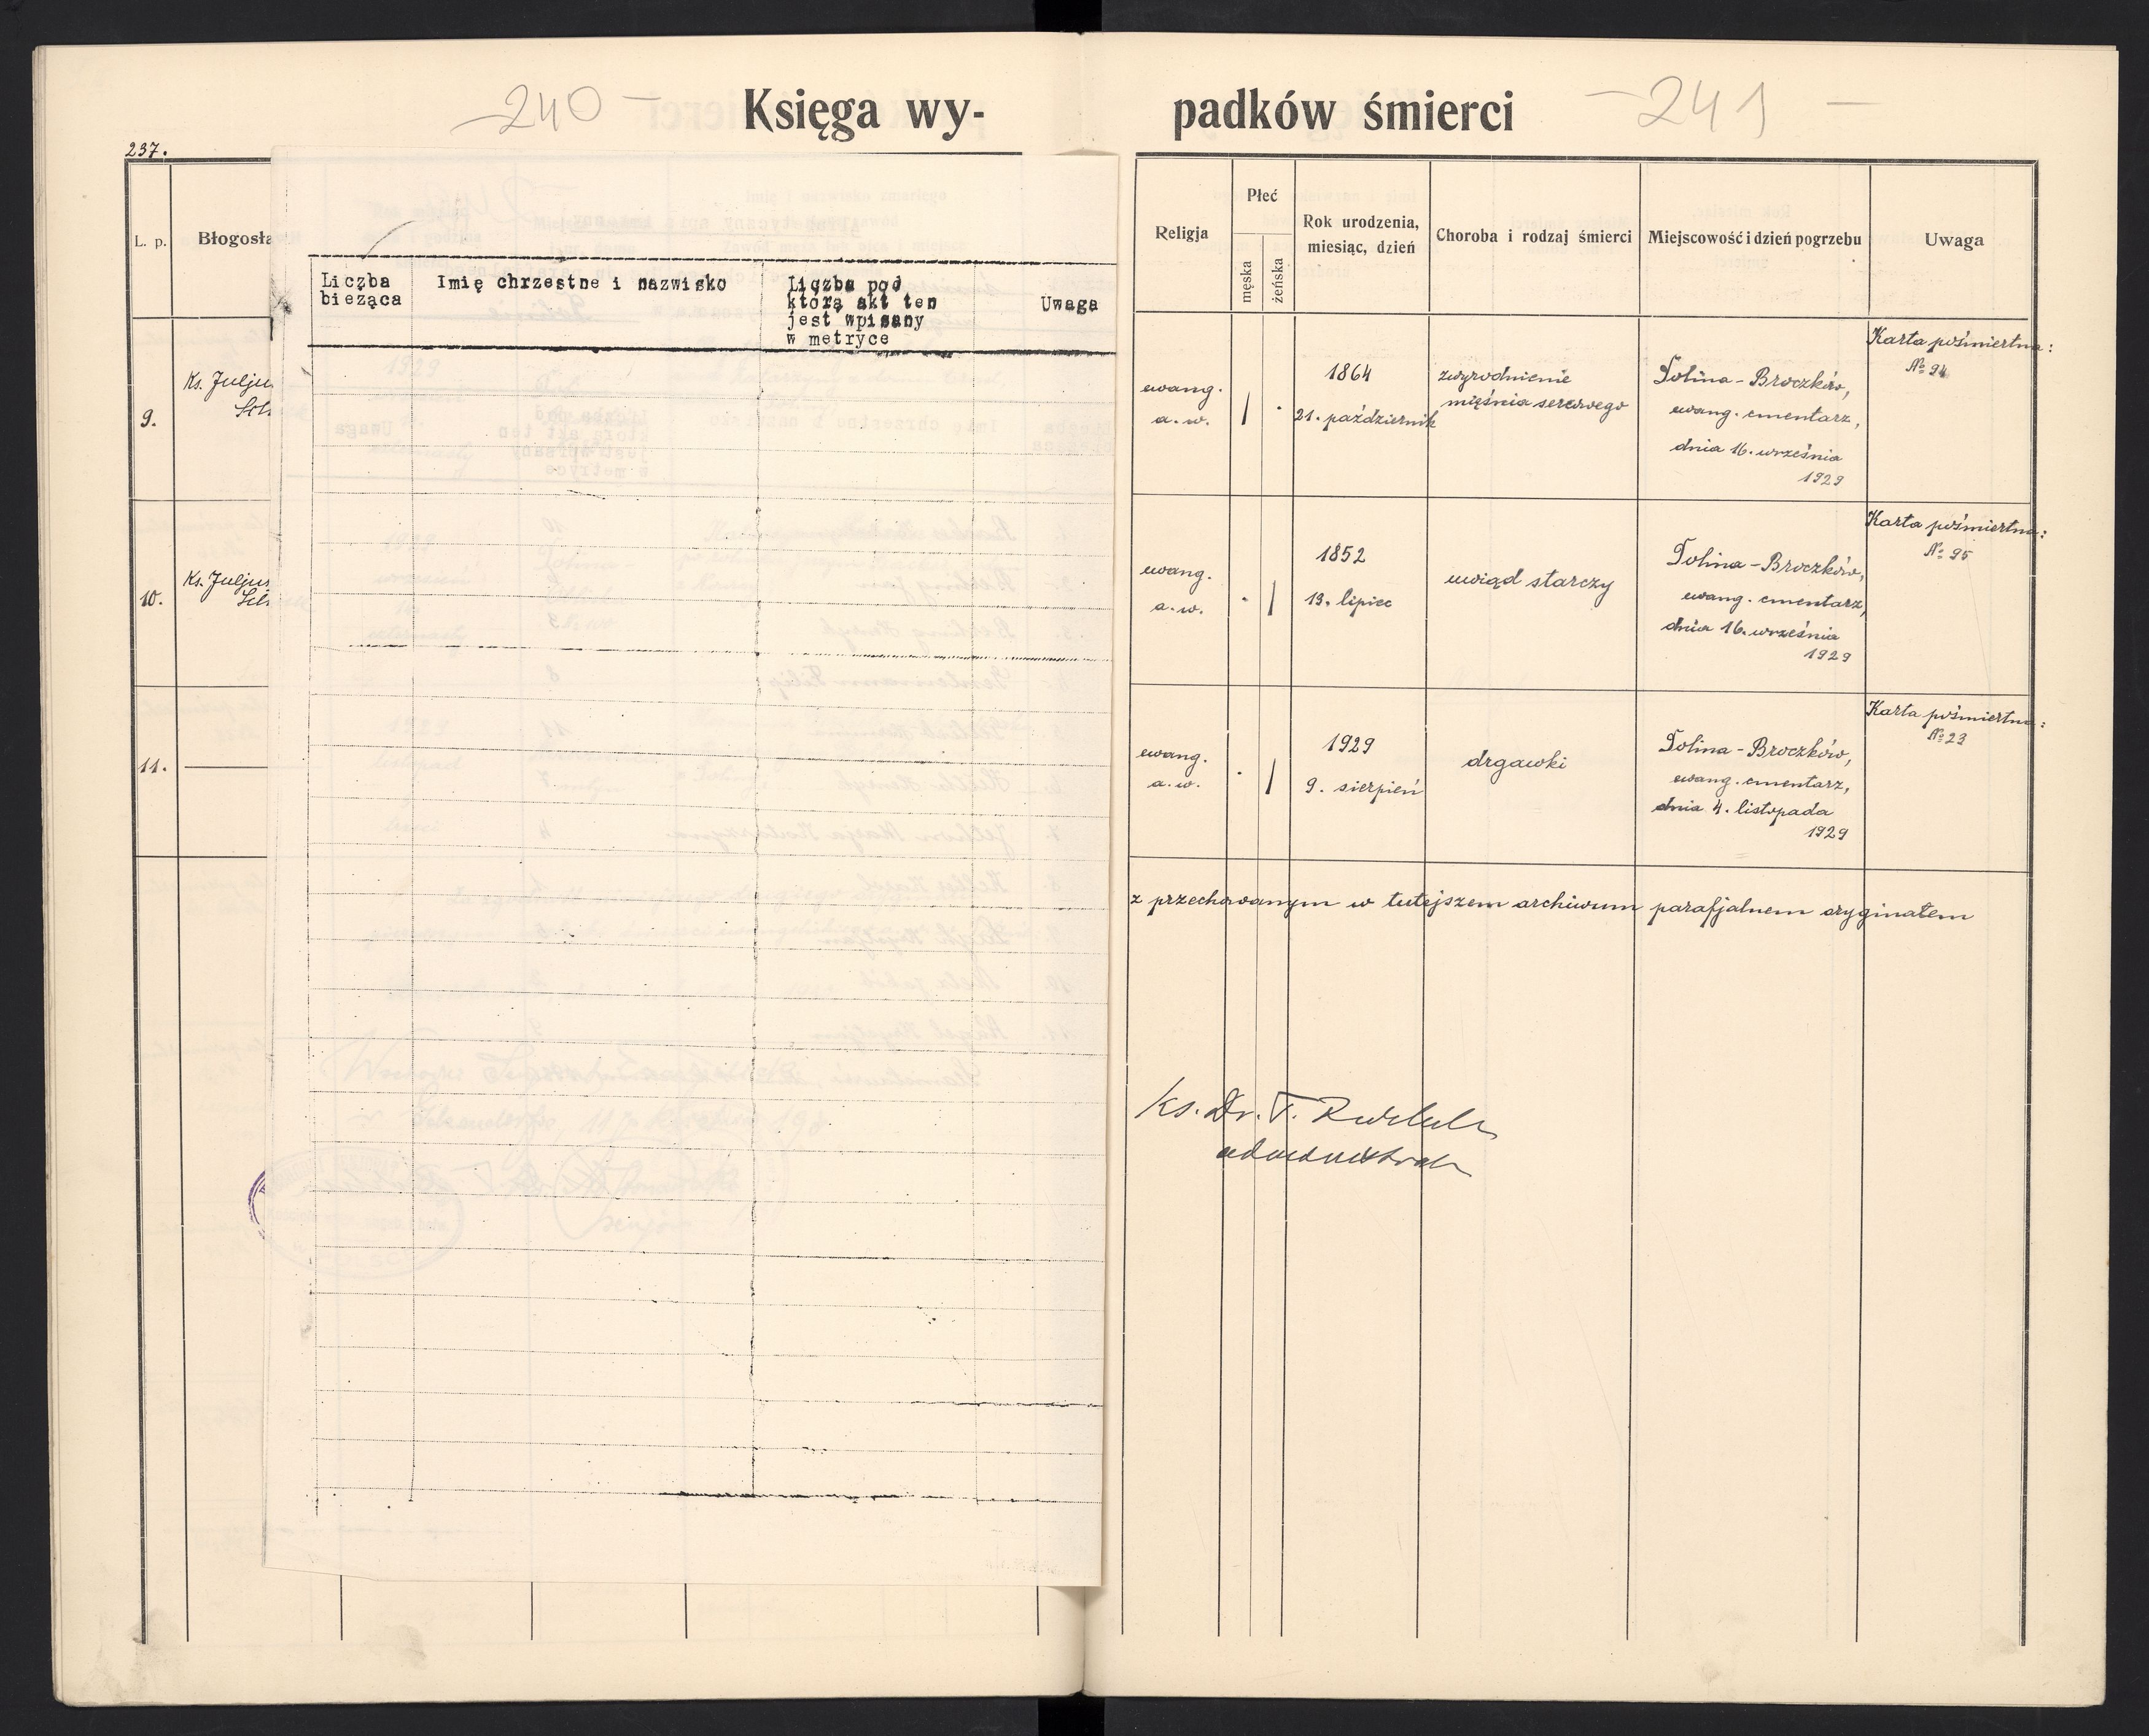 -240-
Księga wy-
padków śmierci
-241-
237.
L. p.
Błogosła
Liczba
bieząca
Imię chrzestne i nazwisko
Liczba pod
którą akt ten
jest wpisany
w metryce
Uwaga
9.
Ks. Julju
10.
Ks. Juljus
11.
Religja
Płeć
męska
żeńska
Rok urodzenia,
miesiąc, dzień
Choroba i rodzaj śmierci
Miejscowość i dzień pogrzebu
Uwaga
ewang.
a.w.
1864
21. październik
zwyrodnienie
mięśnia sercowego
Dolina-Broczków,
ewang. cmentarz,
dnia 16. września
1929
Karta pośmiertna:
№ 94
ewang.
a.w.
1852
13. lipiec
uwiąd starczy
Dolina-Broczków,
ewang. cmentarz,
dnia 16. września
1929
Karta pośmiertna:
№ 95
ewang.
a.w.
1929
9. sierpień
drgawki
Dolina-Broczków,
ewang. cmentarz,
dnia 4. listopada
1929
Karta pośmiertna:
№ 23
z przechowanym w tutejszem archiwum parafjalnem oryginałem
Ks. Dr. T.